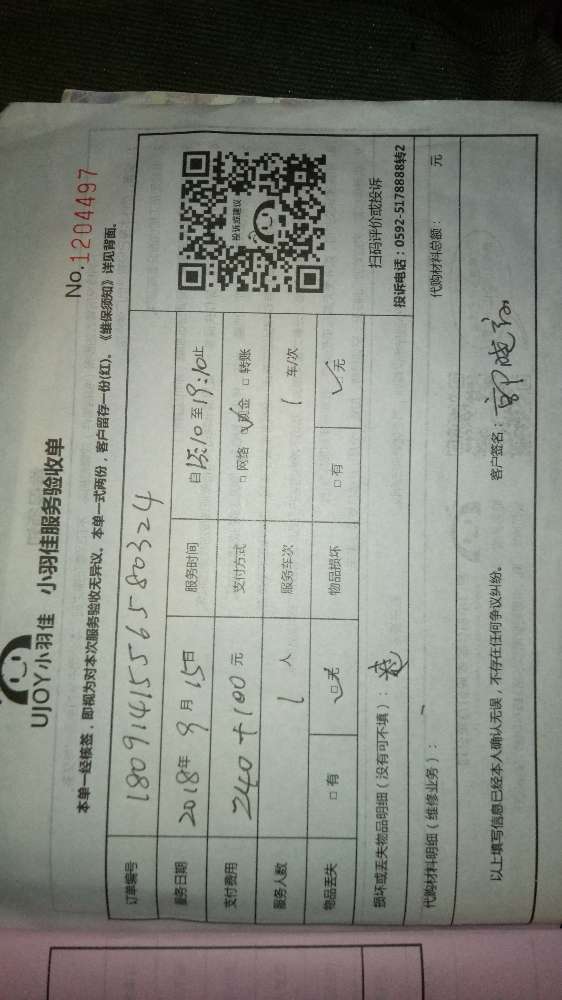 UJOY小羽佳 小羽佳服务验收单
No.1204497
本单一经核签，即视为对本次服务验收无异议。本单一式两份，客户留存一份(红)。《维保须知》详见背面。
订单编号 180914155658 0324
服务日期 2018年 9月 15日 服务时间 自15:10至19:10止
支付费用 240+100元 支付方式 □网络 ☑现金 □转账
服务人数 1人 服务车次 1 车/次
物品丢失 □有 ☑无 物品损坏 □有 ☑无
投诉或建议
扫码评价或投诉
投诉电话：0592-5178888转2
损坏或丢失物品明细（没有可不填）：
代购材料明细（维修业务）： 代购材料总额： 元
以上填写信息已经本人确认无误，不存在任何争议纠纷。 客户签名：